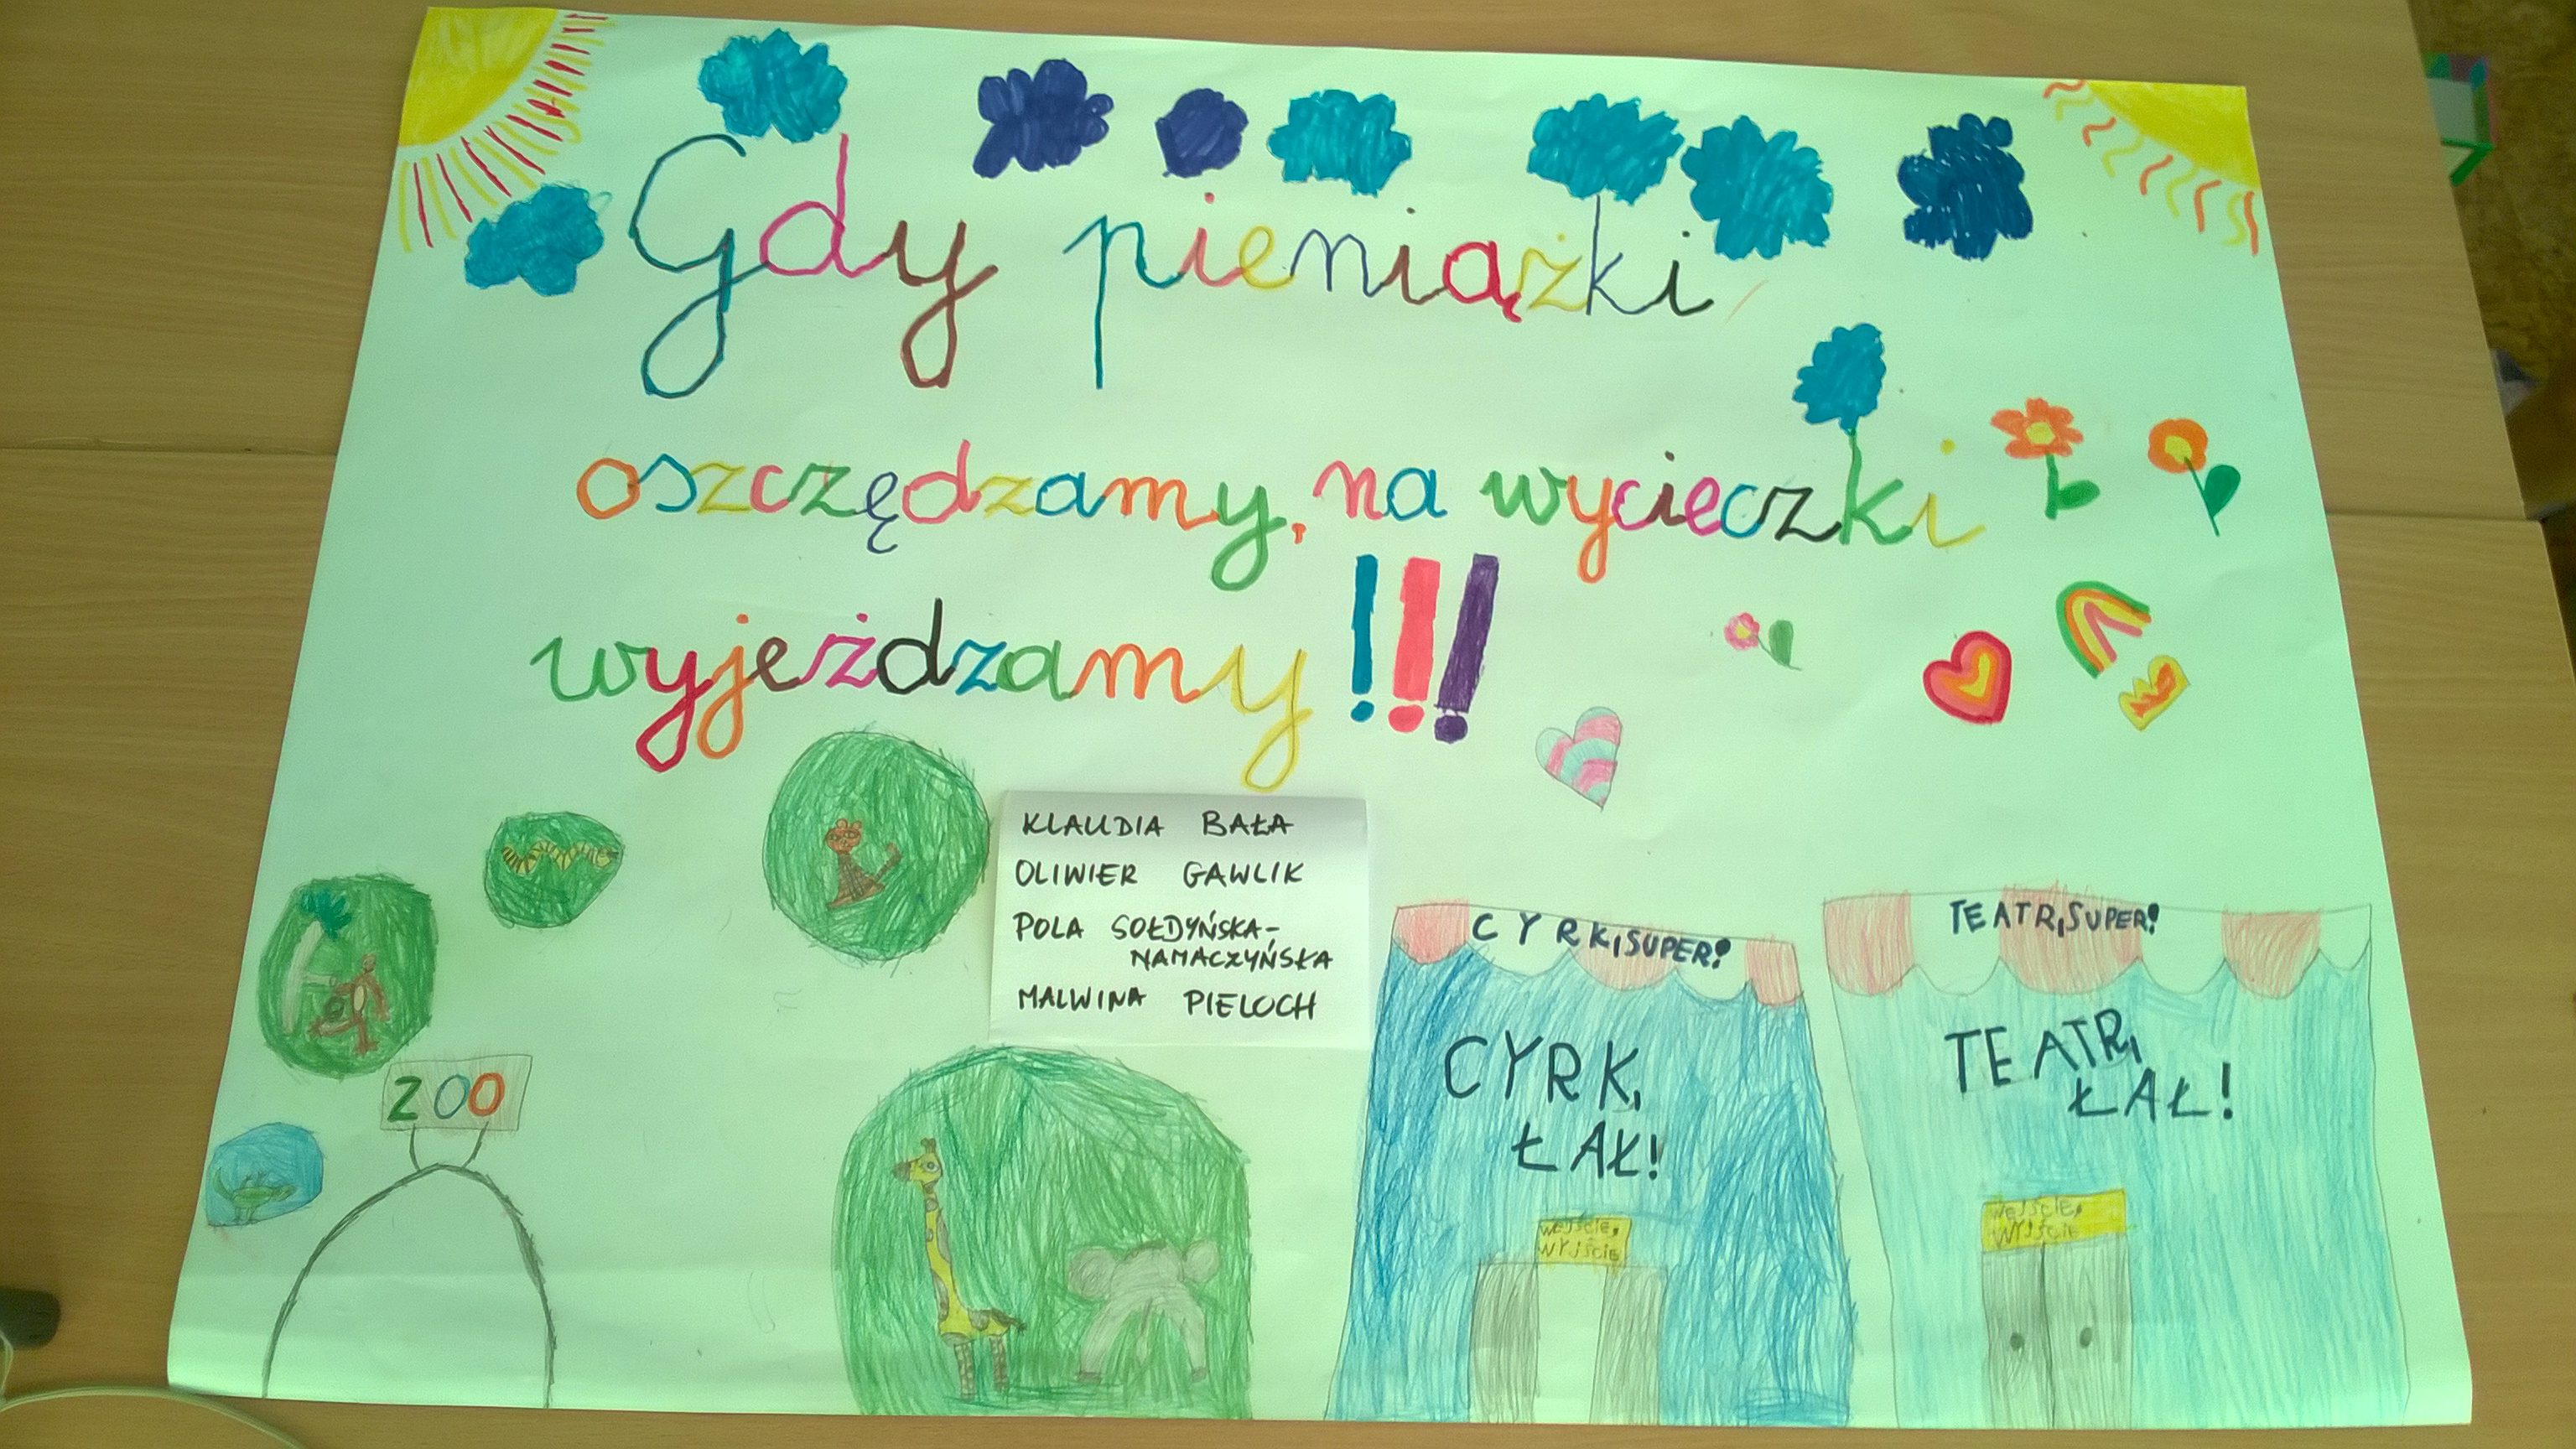 Gdy pieniążki
oszczędzamy, na wycieczki
wyjeżdzamy !!!
KLAUDIA BAŁA
OLIWIER GAWLIK
POLA SOŁDYŃSKA-
NAMACZYŃSKA
MALWINA PIELOCH
CYRK, SUPER!
TEATR, SUPER!
CYRK,
ŁAŁ!
TEATR,
ŁAŁ!
ZOO
WEJŚCIE,
WYJŚCIE
WEJŚCIE,
WYJŚCIE